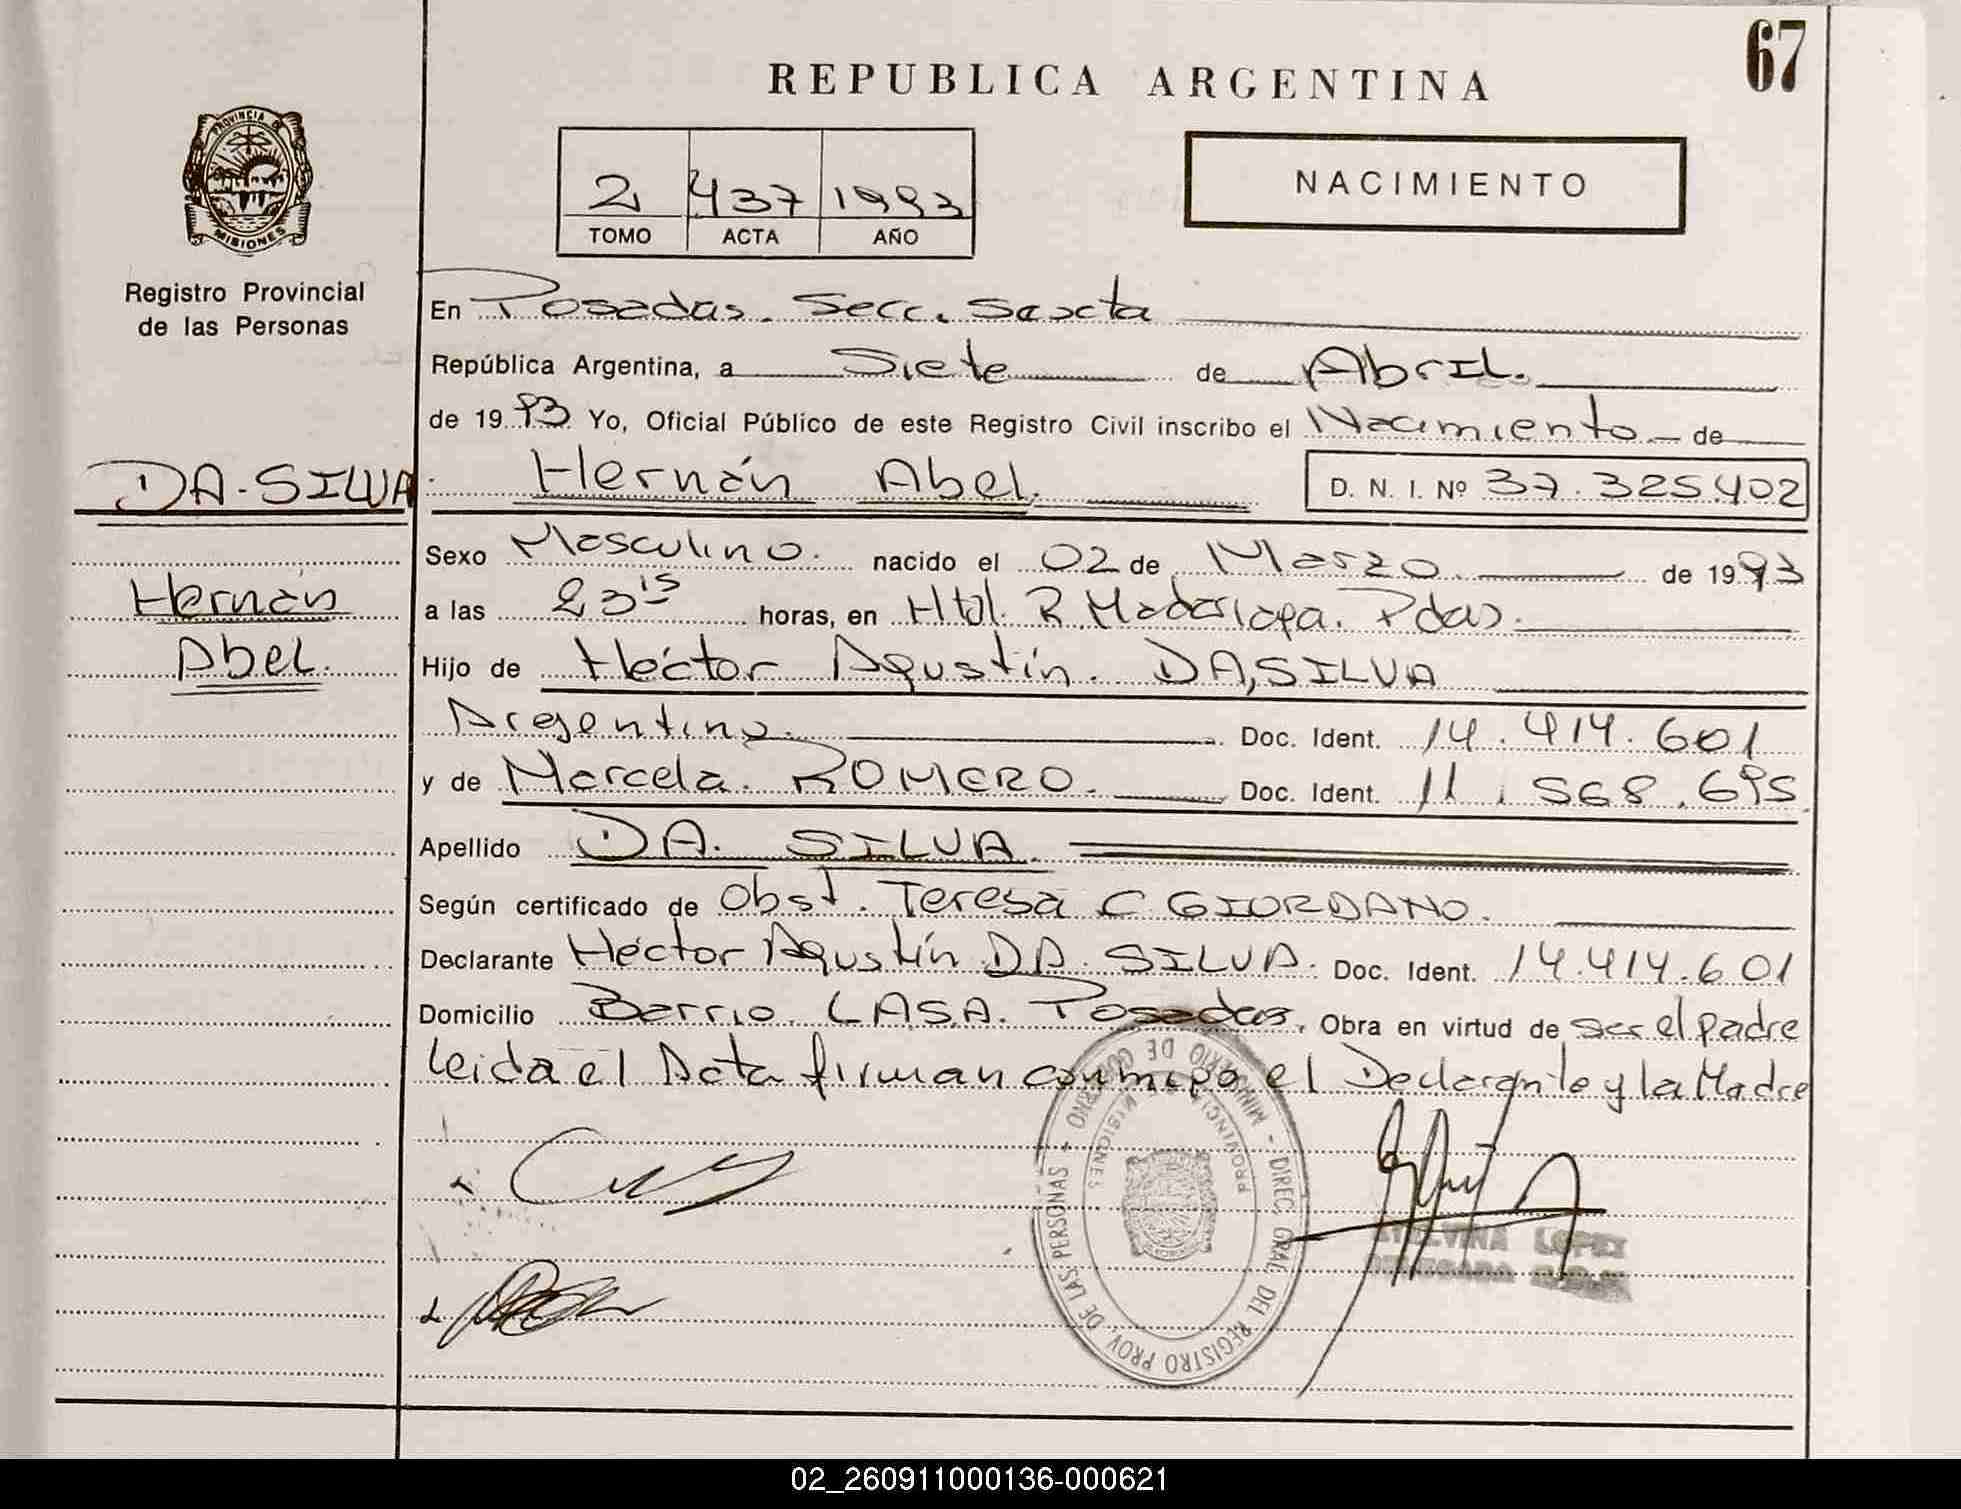 67
REPUBLICA ARGENTINA
PROVINCIA DE
MISIONES
Registro Provincial
de las Personas
2 437 1993
TOMO ACTA AÑO
NACIMIENTO
En Posadas. Secc. Sexta
República Argentina, a Siete de Abril.
de 1993 Yo, Oficial Público de este Registro Civil inscribo el Nacimiento de
DA-SILVA Hernán Abel. D. N. I. Nº 37.325.402
Sexo Masculino. nacido el 02 de Marzo de 1993
Hernán
a las 23 15 horas, en Htal. R Madariaga. Pdas.
Abel.
Hijo de Héctor Agustín. DA, SILVA
Argentino. Doc. Ident. 14.414.601
y de Marcela. ROMERO. Doc. Ident. 11.568.695
Apellido DA. SILVA.
Según certificado de Obst. Teresa C GIORDANO.
Declarante Héctor Agustín DA. SILVA. Doc. Ident. 14.414.601
Domicilio Barrio LASA. Posadas. Obra en virtud de ser el padre
leida el Acta firman conmigo el Declarante y la Madre
MINISTERIO DE GOBIERNO - DIREC. GRAL. DEL REGISTRO PROV. DE LAS PERSONAS -
PROVINCIA DE MISIONES
LOPEZ
02_260911000136-000621